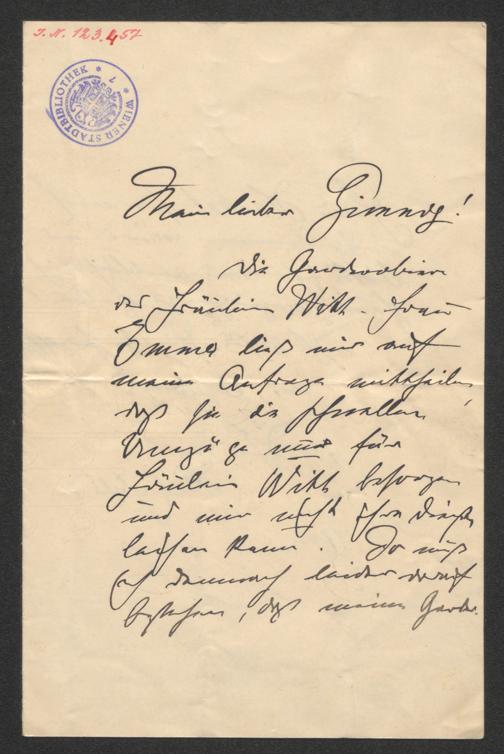 J.N. 123.457
WIENER STADTBIBLIOTHEK * 7 *
Mein lieber
Die Garderobiere
des Fräulein Witt. Frau
Emma ließ mir auf
meine Anfrage mittheilen,
daß sie die schnellen
Umzüge nur für
Fräulein Witt besorgen
und mir nicht ihre Dienste
leihen kann. So muß
ich demnach leider darauf
bestehen, daß meine Garde-